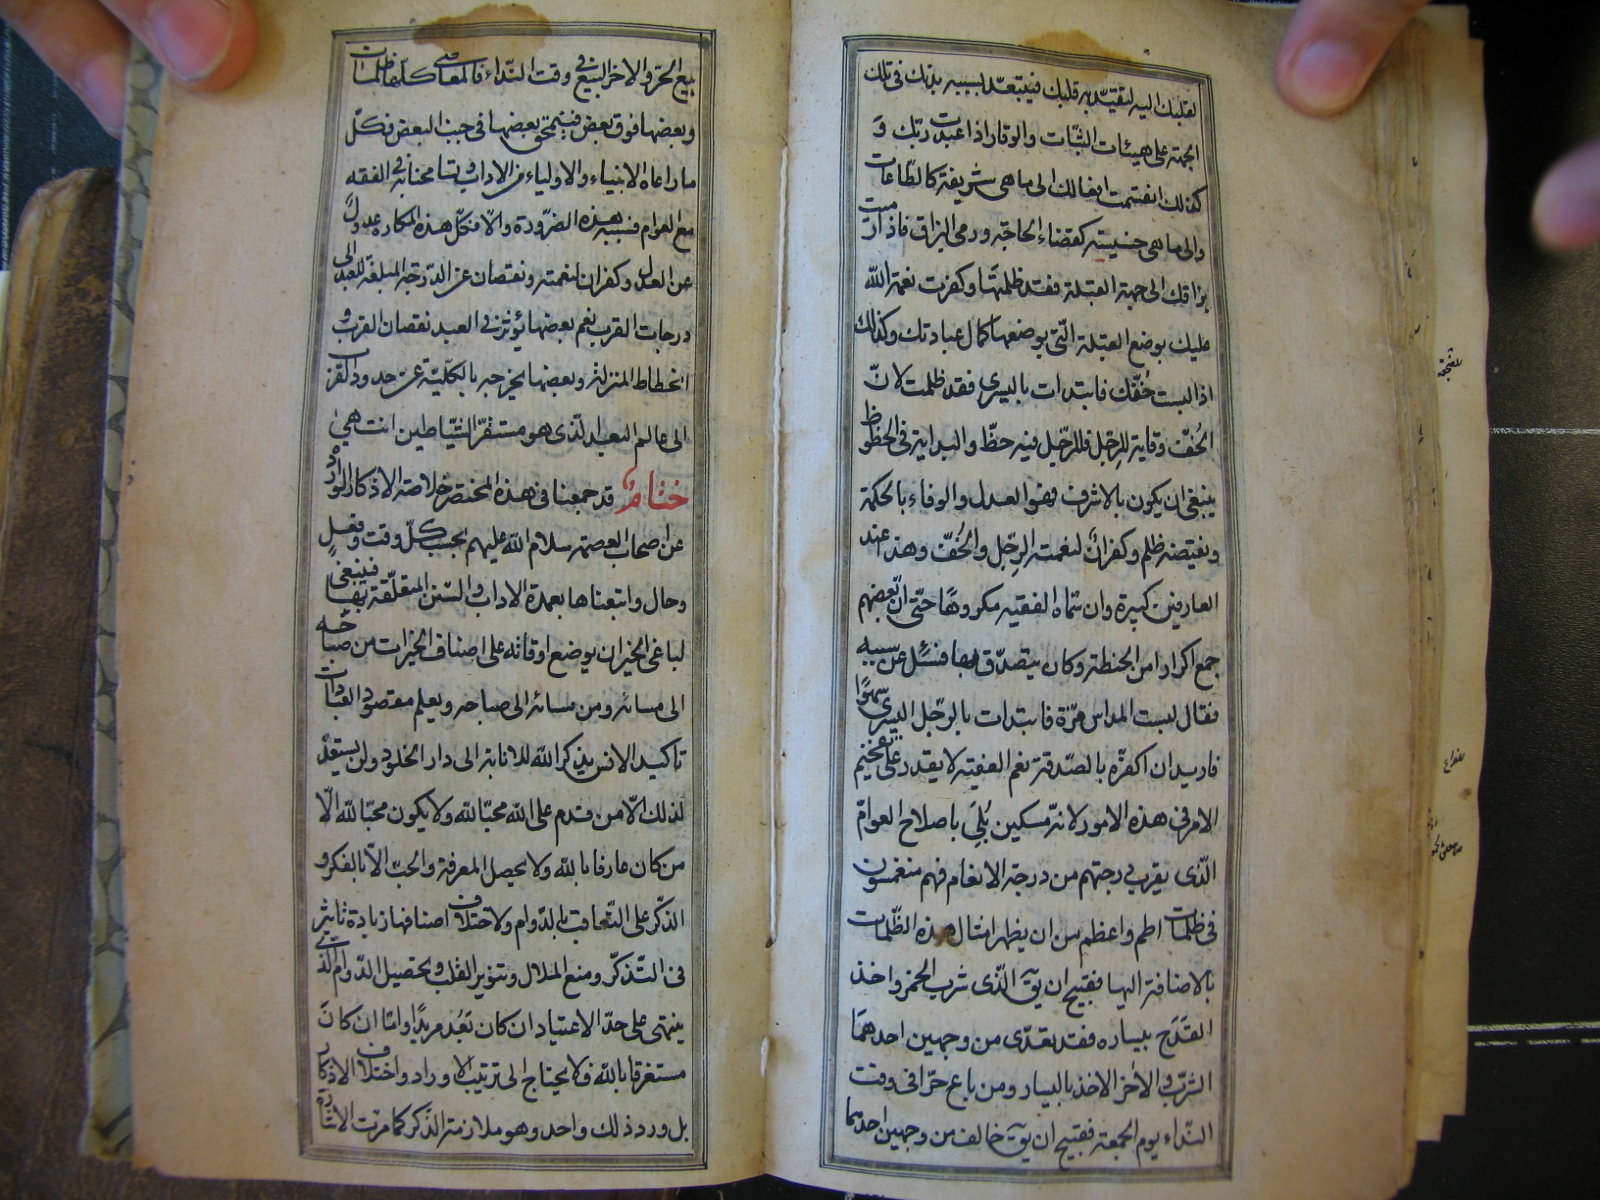 لقلبك اليه ليتقيد به قلبك فيتبعد لسببه بدنك في تلك
الجهة على هيئات الثبات والوقار اذا عبدت ربك و
كذلك انقسمت افعالك الى ما هي شريفة كالطاعات
والى ما هي خسيسة كقضاء الحاجة ورمى البزاق فاذا رميت
بزاقك الى جهة القبلة فقد ظلمتها وكفرت نعمة الله
عليك بوضع القبلة التي بوضعها كمال عبادتك وكذلك
اذا لبست خُفّك فابتدات باليسرى فقد ظلمت لانّ
الخُفّ وقاية للرِجل فللرّجل فيه حظّ والبداية في الحظوظ
ينبغي ان يكون بالاشرف فهو العدل والوفاء بالحكمة
ونقيضه ظلم وكفران لنعمة الرِجل والخُفّ وهذا عند
العارفين كبيرة وان سمّاه الفقيه مكروهًا حتّى انّ بعضهم
جمع اكرارا من الحنطة وكان يتصدّق بها فسئل عن سببه
فقال لبست المداس مرّة فابتدات بالرّجل اليسرى سهوًا
فاريد ان اكفّره بالصّدقة نعم الفقيه لا يقدر على تفخيم
الامر في هذه الامور لانه مسكين بُلِيَ باصلاح العوامّ
الّذى يقرب درجتهم من درجة الانعام فهم منغمسون
في ظلمات اطم واعظم من ان يظهر امثال هذه الظّلمات
بالاضافة اليها فقبيح ان يق الّذى شرب الخمر واخذ
القَدَح بيساره فقد تعدّى من وجهين احدهمَا
الشرب والآخر الاخذ باليسار ومن باع حرّا في وقت
النّداء يوم الجمعة فقبيح ان يق خالف من وجهين احدهما
بيع الحرّ والاخر البيع في وقت النّداء فالمعاصى كلّها ظلمات
وبعضها فوق بعض فينمحق بعضها في جنب البعض فكلّ
ما راعاه الانبياء والاولياء من الاداب وتسامحنا به في الفقه
مع العوام فسببه هذه الضّرورة والّا فكلّ هذه المكاره عدولٌ
عن العدل وكفران لنعمته ونقصان عن الدّرجة المبلغة للعبد الى
درجات القرب نعم بعضها يؤثر في العبد نقصان القرب و
انحطاط المنزلة وبعضها يخرجه بالكليّة عن حدود القرب
الى عالم البعد الّذى هو مستقرّ الشّياطين انتهى
ختام قد جمعنا في هذه المختصر خلاصة الاذكار الواردة
عن اصحاب العصمة سلام الله عليهم بحسب كلّ وقت وفعلٍ
وحال واتبعناها بعمدة الاداب والسّنن المتعلّقة بها فينبغى
لباغى الخير ان يوضع اوقاته على اصناف الخيرات من صباحه
الى مسائه ومن مسائه الى صباحه ويعلم مقصود العبادات
تاكيد الانس بذكر الله للانابة الى دار الخلود ولن يستعدّ
لذلك الّا من قدم على الله محبّا لله ولا يكون محبّا لله الّا
من كان عارفا بالله ولا يحصل المعرفة والحبّ الّا بالفكر و
الذّكر على التّعاقب بالدّوام ولاختلاف اصنافها زيادة تاثير
في التّذكّر ومنع الملال وتنوير القلب وتحصيل الدّوام الّذى
ينتهى على حدّ الاعتياد ان كان بَعْدُ مريدًا وامّا ان كانَ
مستغرقا بالله فلا يحتاج الى ترتيب الاوراد واختلاف الاذكار
بل ورد ذلك واحد وهو ملازمة الذّكر كما مرت الاشارة